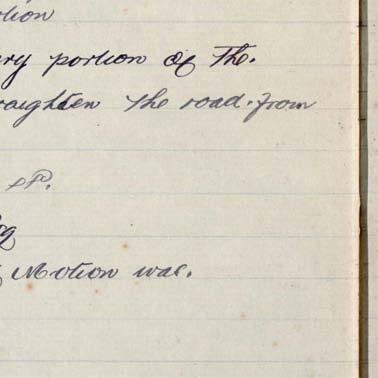 ry portion of The.
raighten the road from
Motion was.